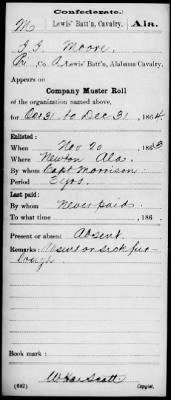 Confederate.
M Lewis' Batt'n, Cavalry. Ala.
Moore
Pvt, Co. A, Lewis' Batt'n, Alabama Cavalry.
Appears on
Company Muster Roll
of the organization named above,
for Oct 31 to Dec 31, 1864.
Enlisted:
When Nov 20, 1863
Where Newton Ala.
By whom Capt Morrison
Period 2 yrs.
Last paid:
By whom Never paid.
To what time , 186 .
Present or absent Absent.
Remarks: Absent on sick fur-
lough.
Book mark:
(642) Copyist.